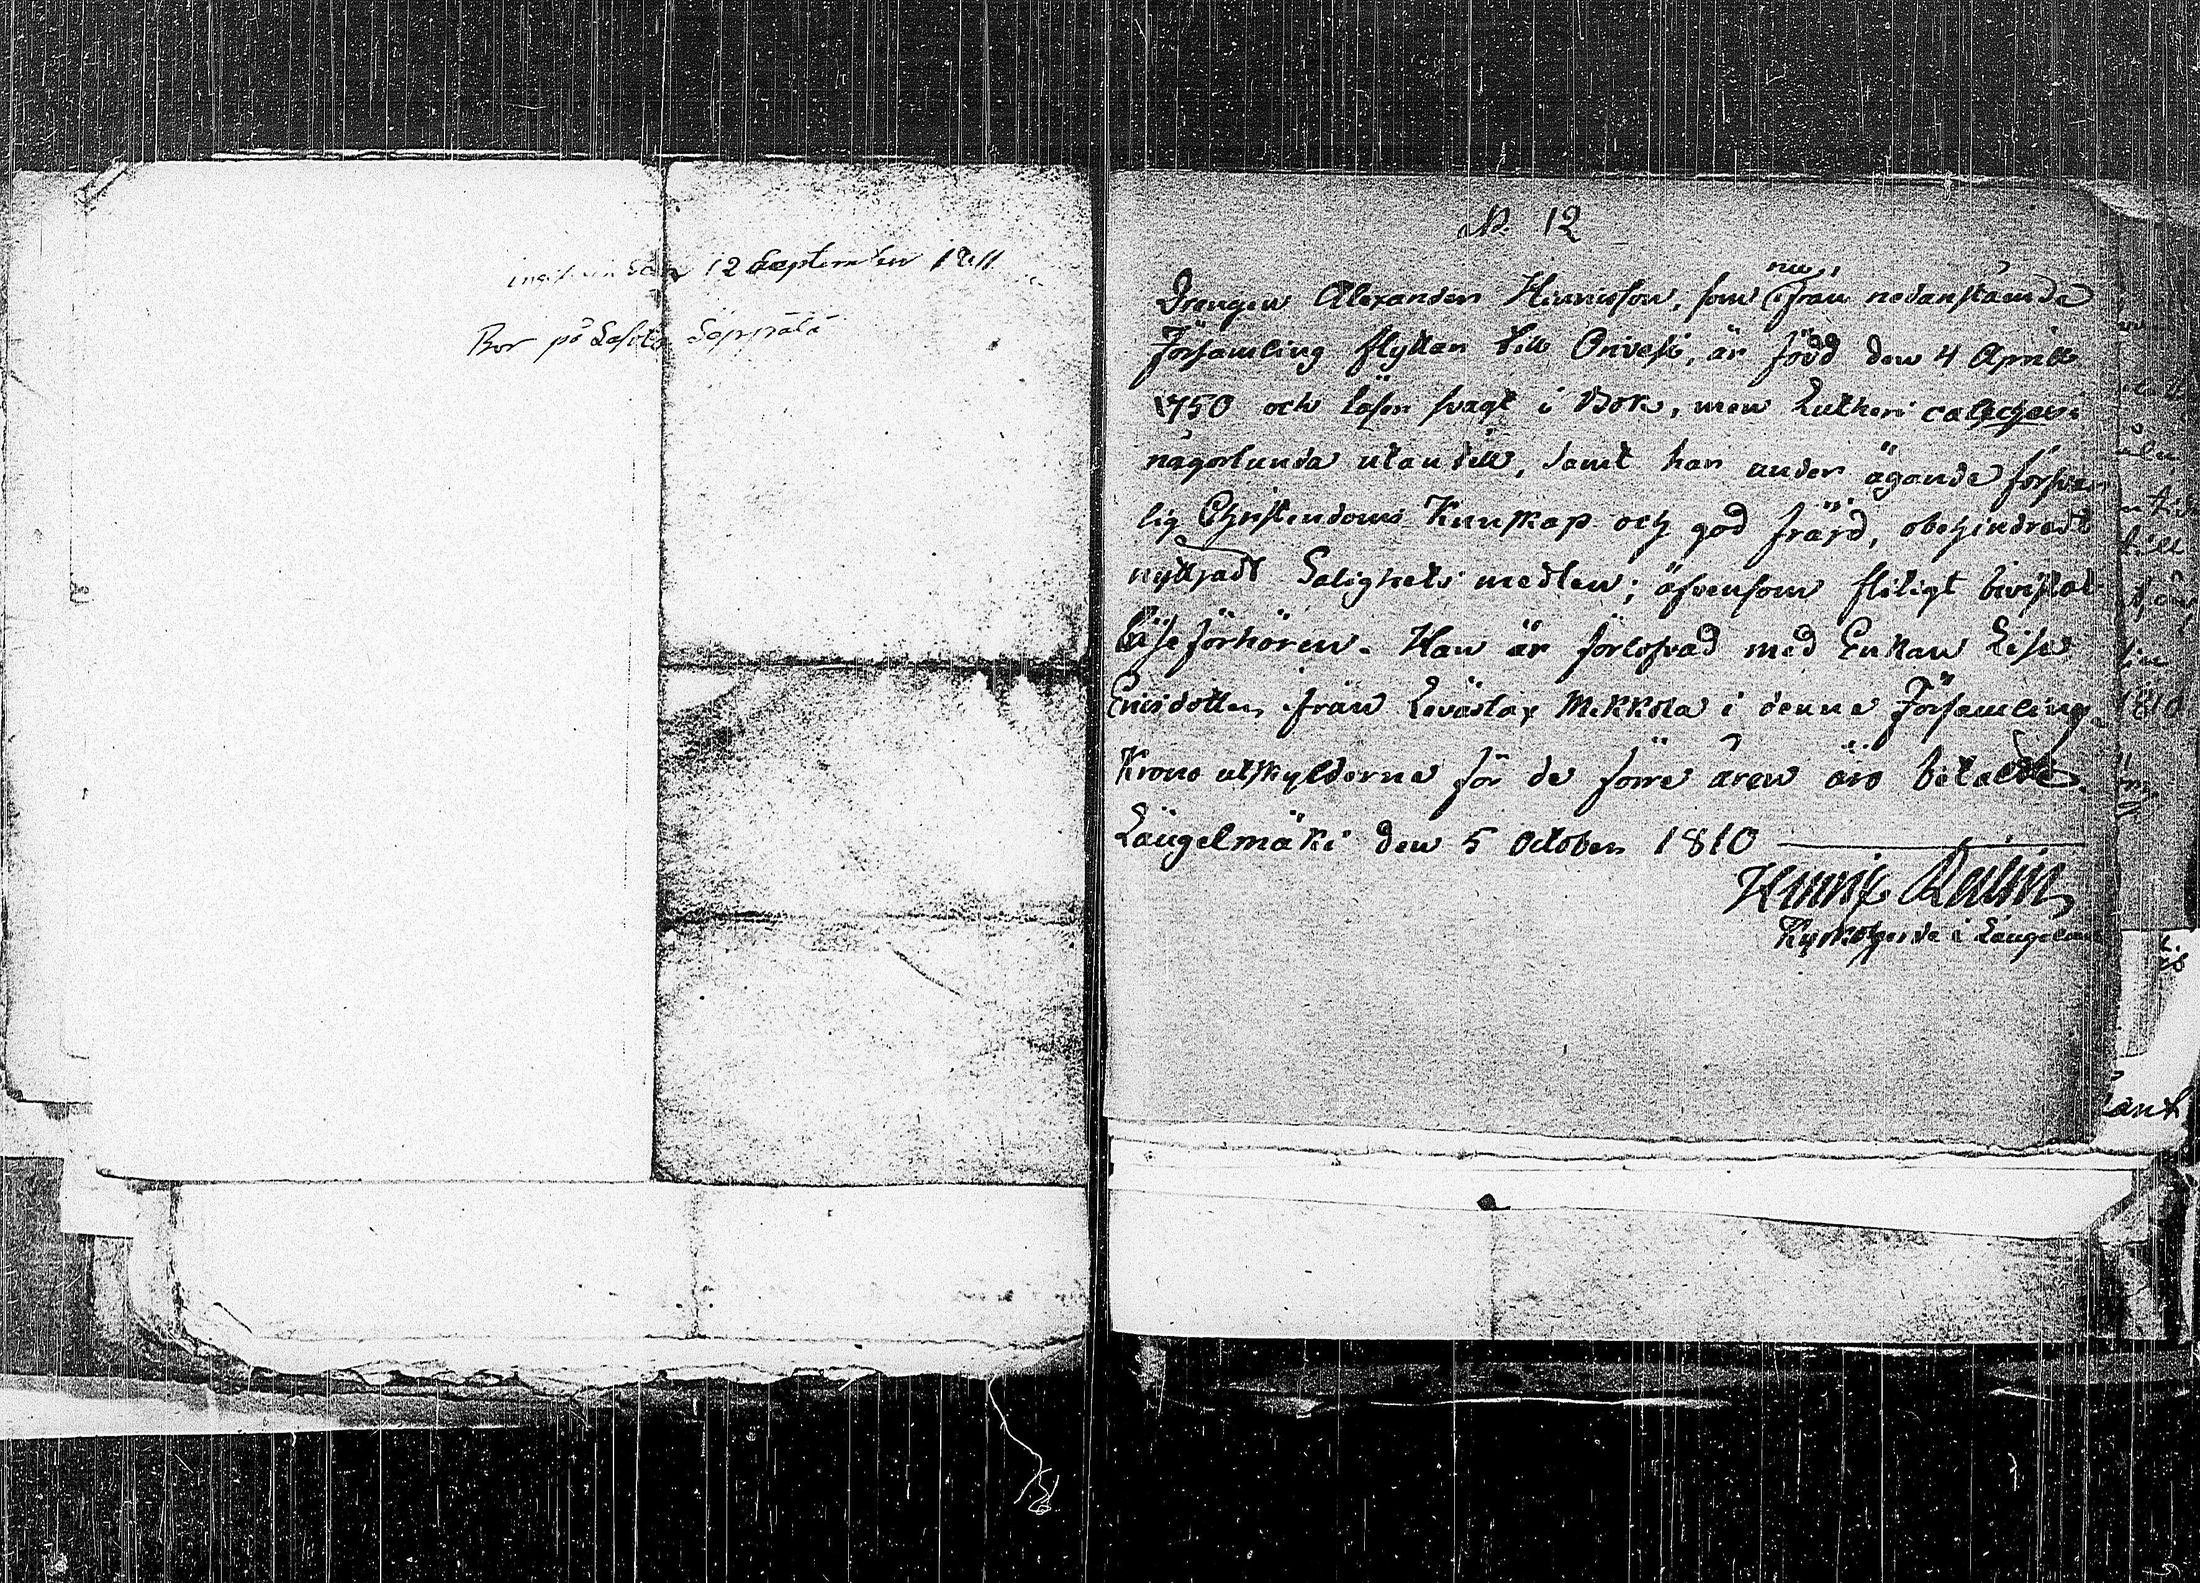 12 September 1811
Bor på Seppälä
N. 12
nu
Drengen Alexander Henricsson, som ifrån nedanstående
Församling flyttar till Orivesi, är född den 4 April
1750 och läser svagt i Bok, men Lutheri catechesi
någorlunda utantill, samt har under ägande försvar
lig Christendoms Kunskap och god fräjd, obehindradt
nyttjadt Salighets medlen; äfvensom flitigt bivistat
Läseförhören. Han är förlofvad med Enkan Lisa
Ericsdotter ifrån Leväslax Mikkola i denna Församling.
Krono utskylderne för de förre åren äro betalde.
Längelmäki den 5 October 1810
Henric
Kyrkoherde i Längelmä
till
1810